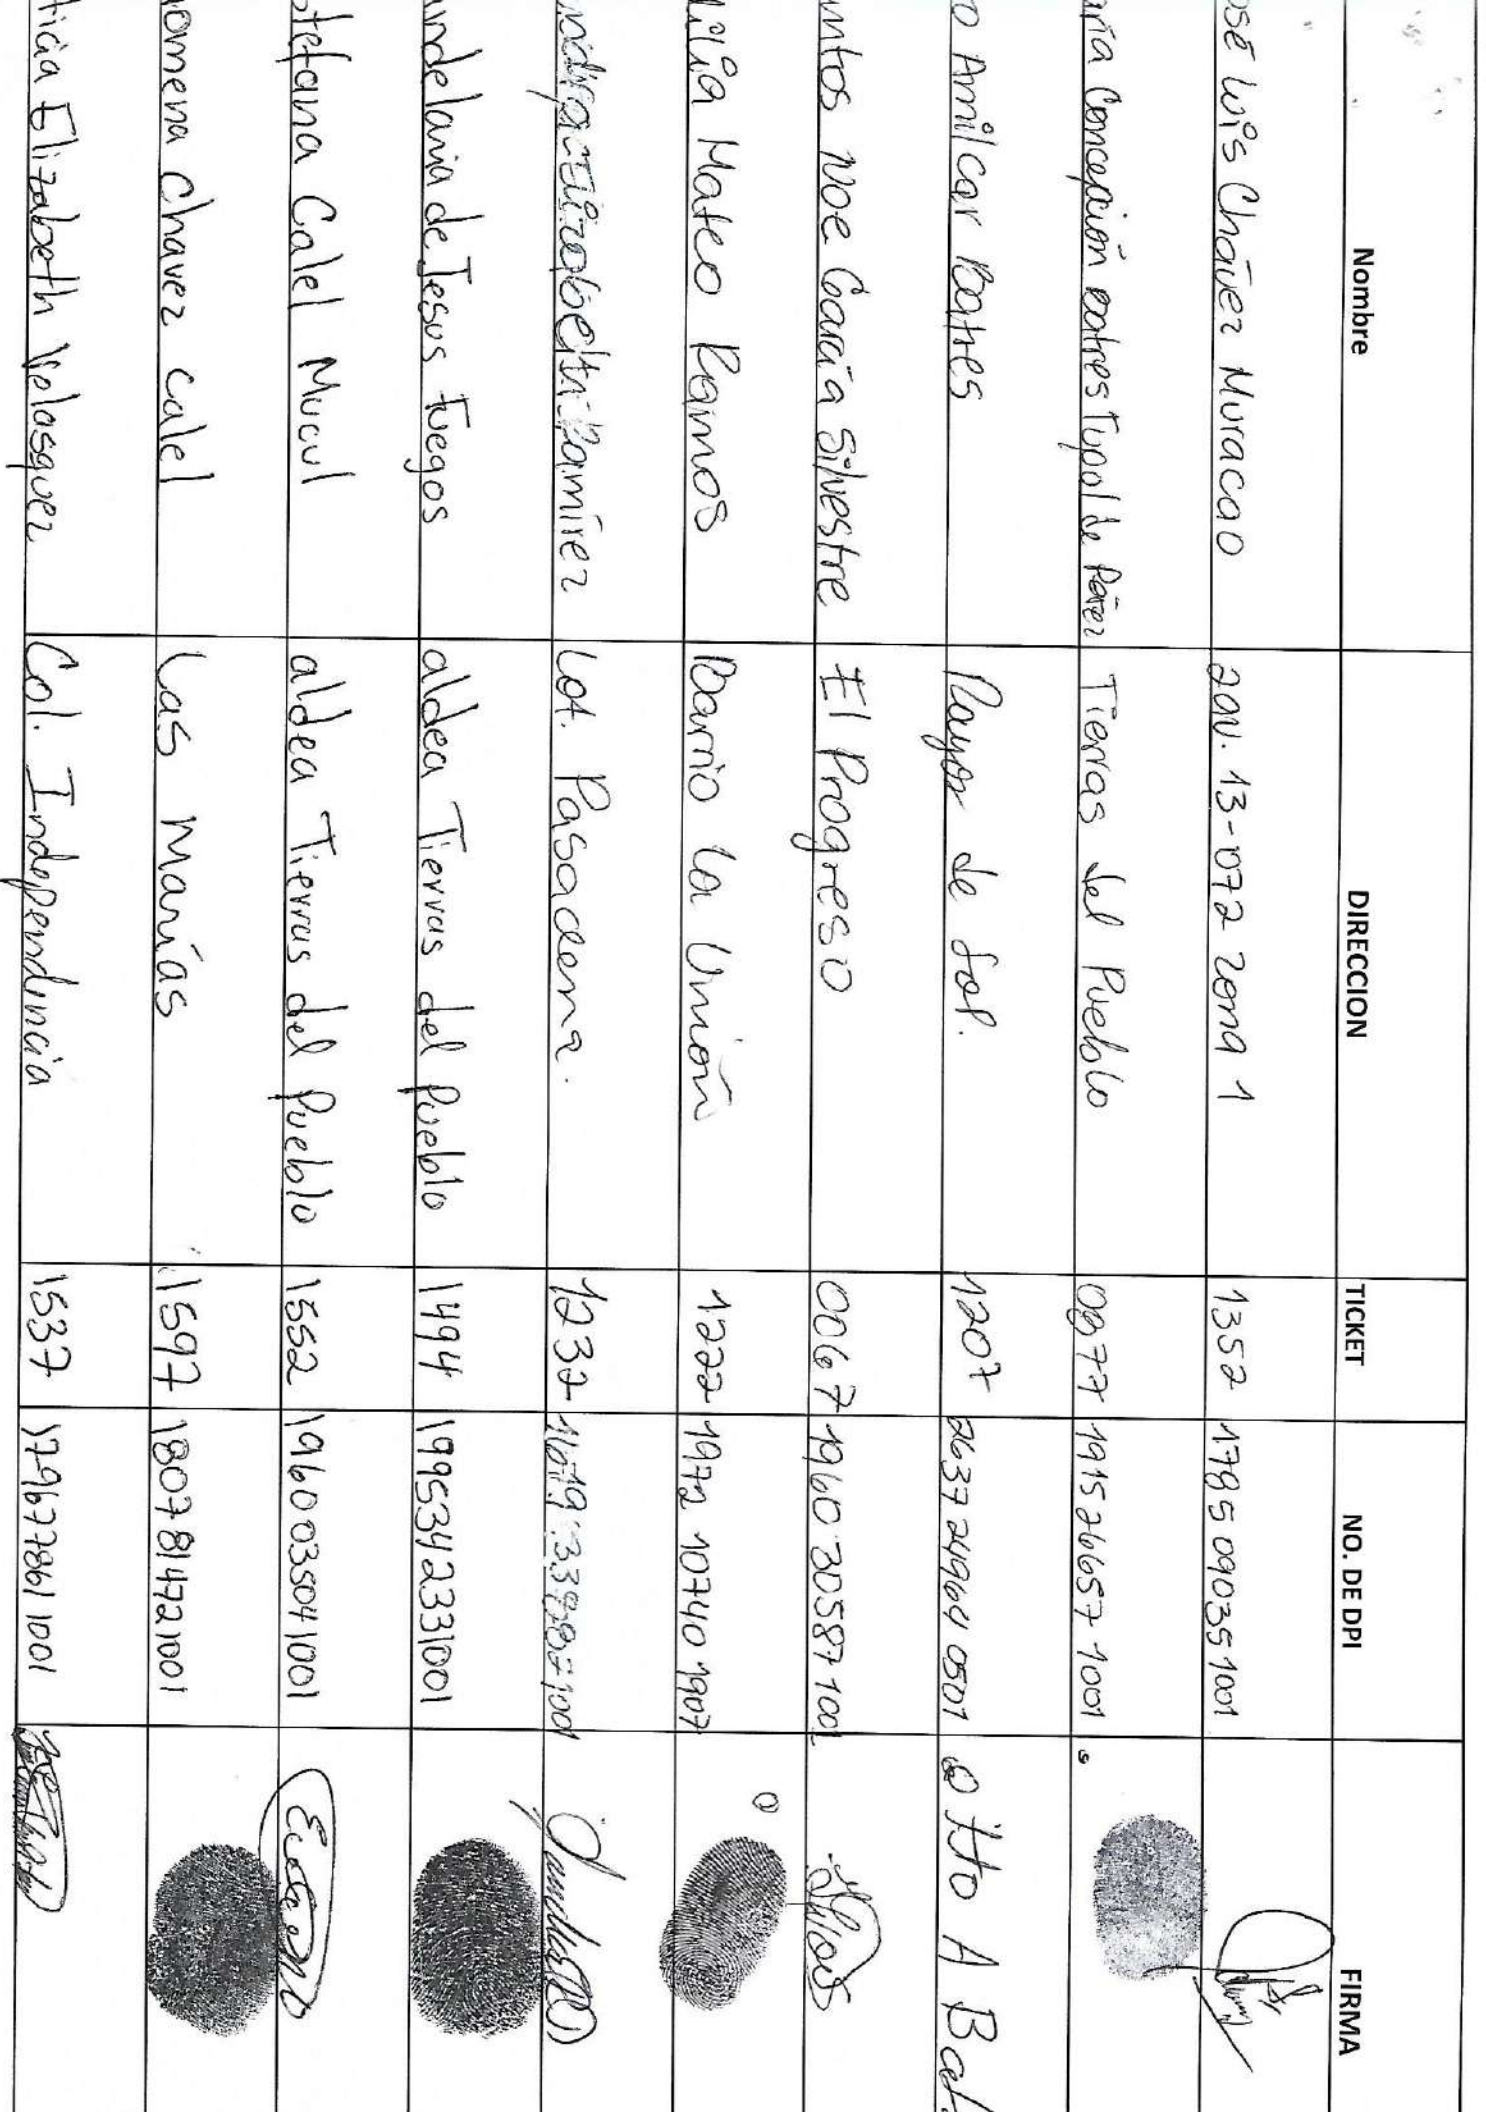 Nombre DIRECCION TICKET NO. DE DPI FIRMA
osé Luis Chávez Muracao 2av. 13-072 zona 1 1352 1785 09035 1001
aría Concepción batres Tupal de Paréz Tierras del Pueblo 0877 1915 26657 1001
o Amilcar Batres Rayos de Sol. 1207 2637 24964 0501 otto A Bat
untos Noe García Silvestre El Progreso 0067 1960 30587 1001
ilia Mateo Ramos Barrio La Unión 1222 1972 10740 1907
Ramírez Lot. Pasadena. 1232
andelaria de Jesus Fuegos aldea Tierras del Pueblo 1494 1995342331001
stefana Calel Mucul aldea Tierras del Pueblo 1552 1960035041001
omena Chavez calel Las Marías 1597 1807814721001
ticia Elizabeth Velasquez Col. Independincia 1537 1796778611001